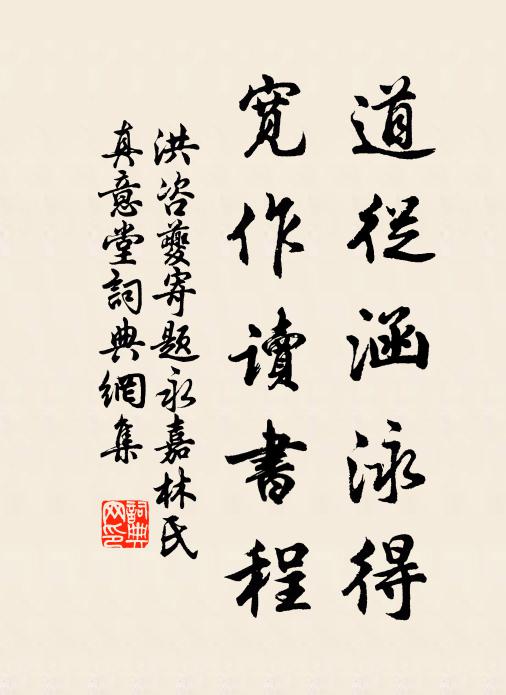 道從涵泳得
寬作讀書程
洪咨夔寄題永嘉林氏
真意堂詞典網集
詞典网印